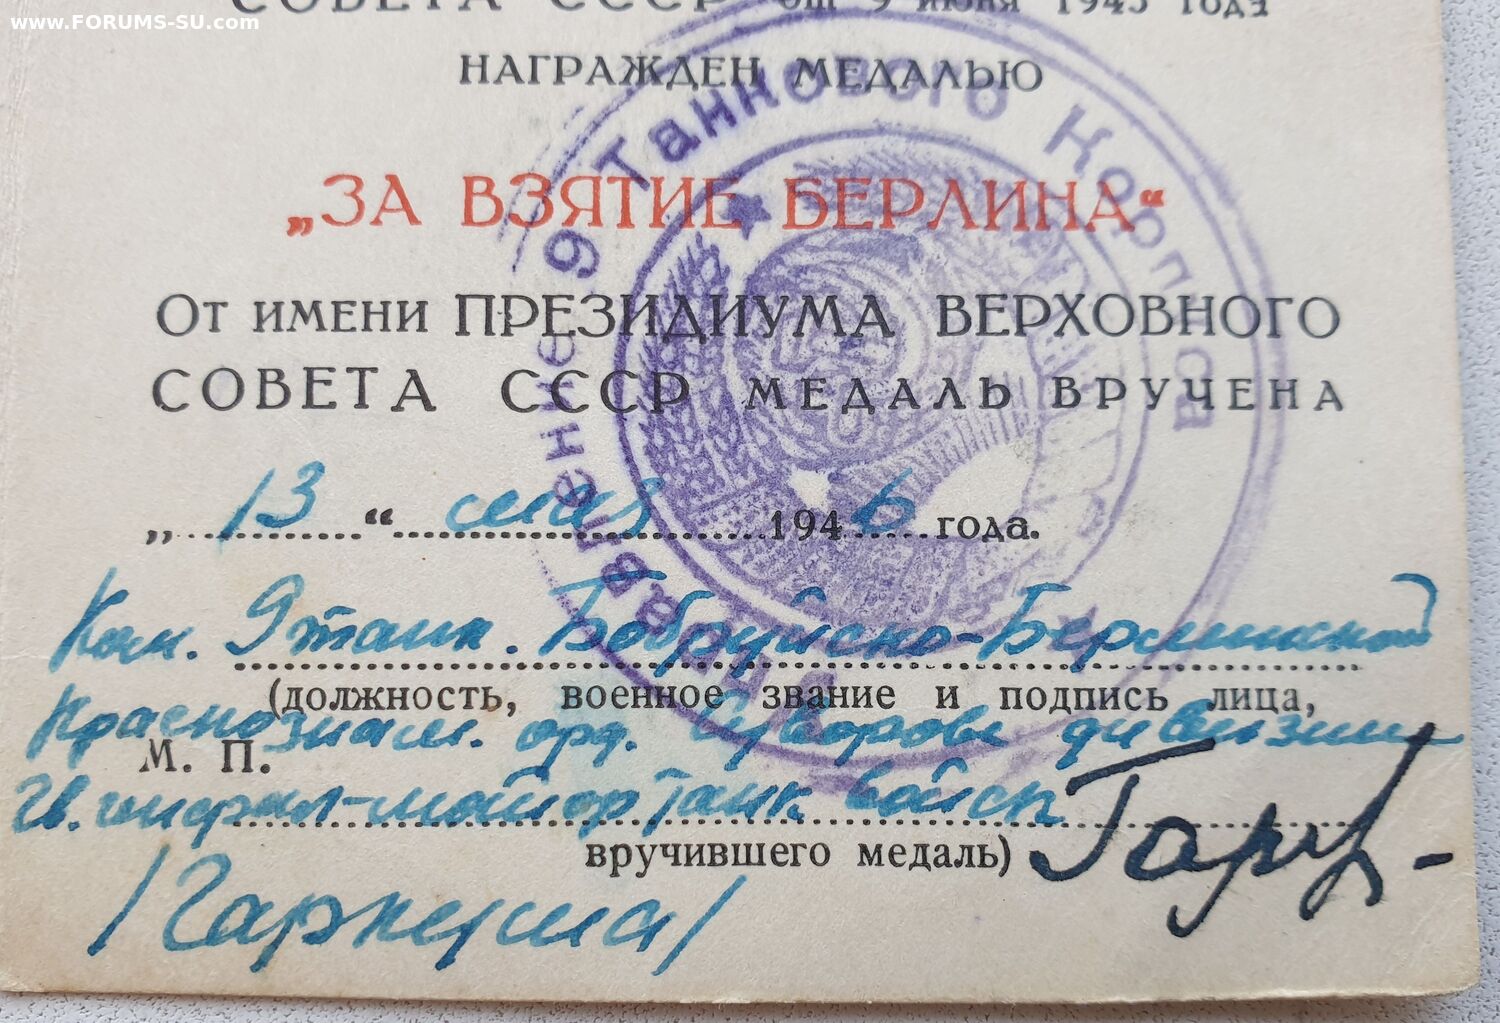 www.FORUMS-SU.com
СОВЕТА СССР от 9 июня 1945 года
НАГРАЖДЕН МЕДАЛЬЮ
„ЗА ВЗЯТИЕ БЕРЛИНА“
От имени ПРЕЗИДИУМА ВЕРХОВНОГО
СОВЕТА СССР МЕДАЛЬ ВРУЧЕНА
„13“ мая 1946 года.
Ком. 9 танк. Бобруйско-Берлинской
(должность, военное звание и подпись лица,
Краснознам. орд. Суворова дивизии
М. П.
Гв. генерал-майор танк войск
вручившего медаль)
Управление 9 Танкового Корпуса